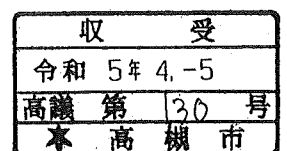 収受
令和 5年 4.-5
高議第130号
★高槻市